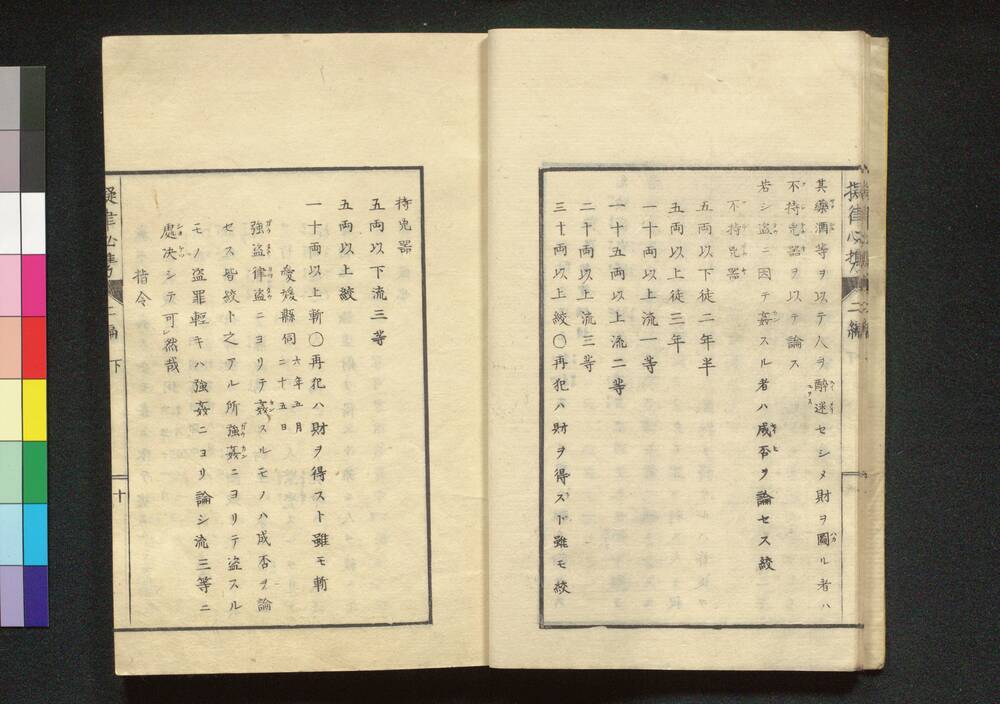 其藥酒等ヲ以テ人ヲ醉迷セシメ財ヲ圖ル者ハ
不持兇器ヲ以テ論ス
若シ盜ニ因テ姦スル者ハ成否ヲ論セス絞
不持兇器
五両以下徒二年半
五両以上徒三年
一十両以上流一等
一十五両以上流二等
二十両以上流三等
三十両以上絞〇再犯ハ財ヲ得スト雖モ絞
二編
持兇器
五両以下流三等
五両以上絞
一十両以上斬〇再犯ハ財ヲ得スト雖モ斬
愛媛縣伺 六年五月二十五日
強盜律盜ニヨリテ姦スルモノハ成否ヲ論
セス皆絞ト之アル所強姦ニヨリテ盜スル
モノ盜罪輕キハ強姦ニヨリ論シ流三等ニ
處决シテ可然哉
指令
二編 下
十